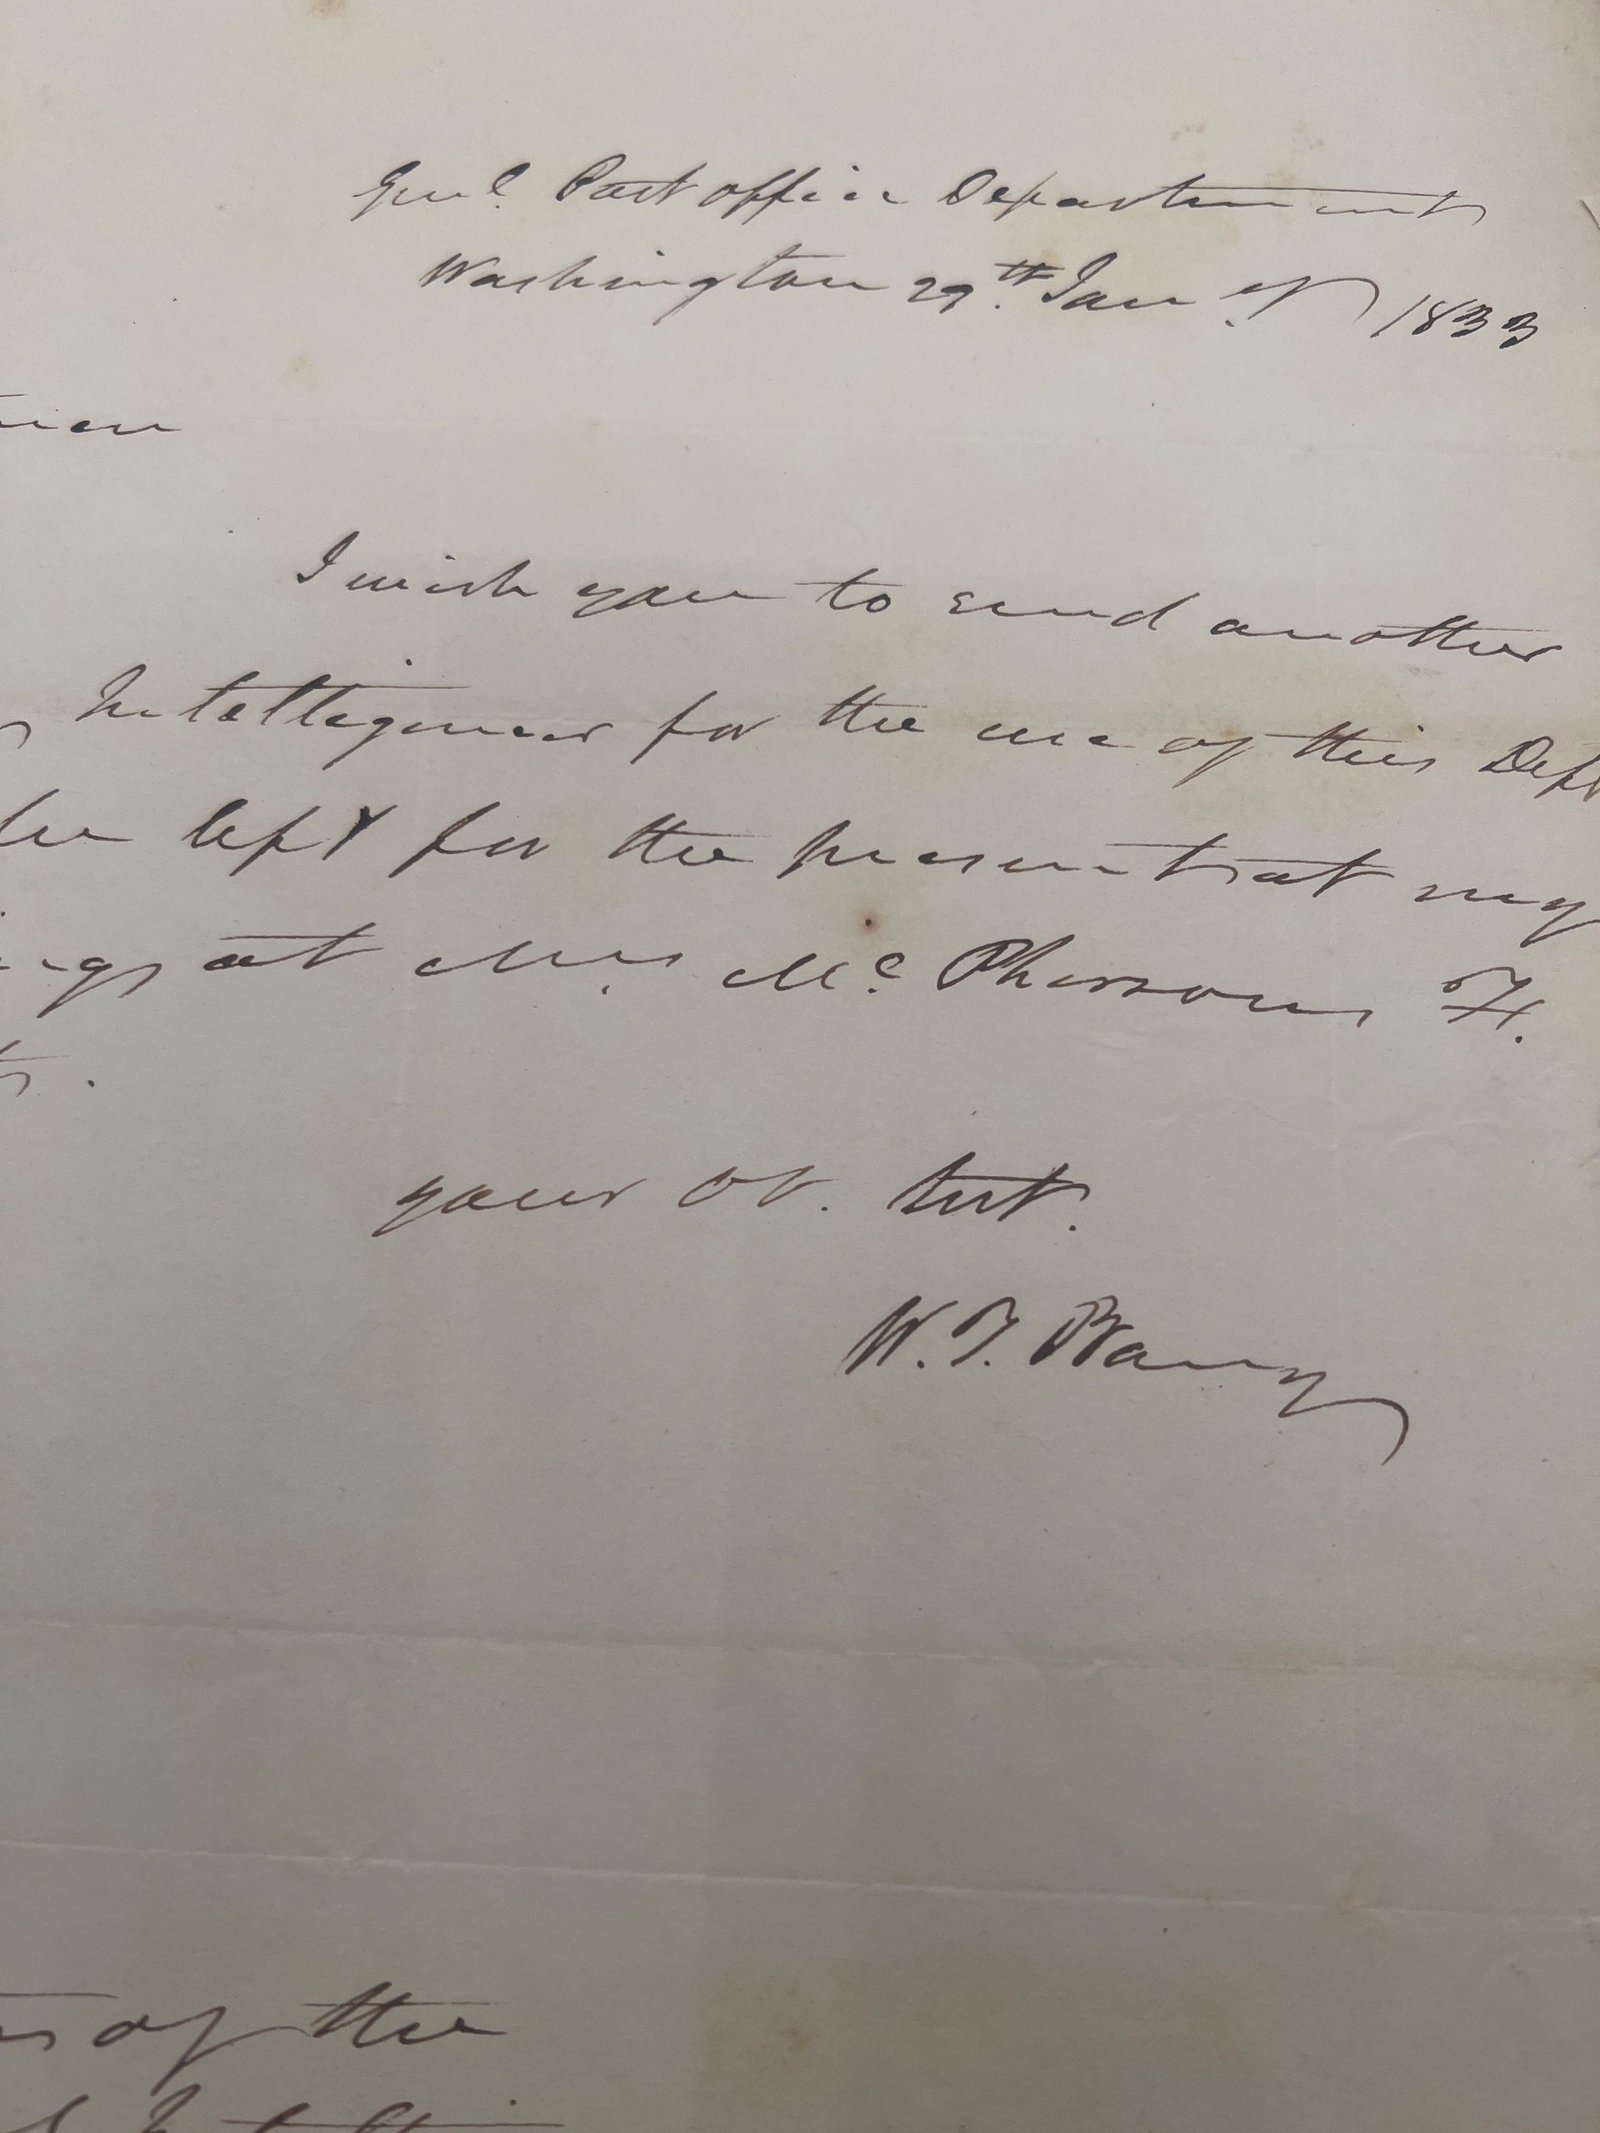 Genl. Post office Department
Washington 29th. Jany. 1833
I wish you to send another
Intelligencer for the use of this Dept
be left for the present at my
at Mrs. Mc. Phersons F.
your Ob. Svt.
W. T. Barry
of the